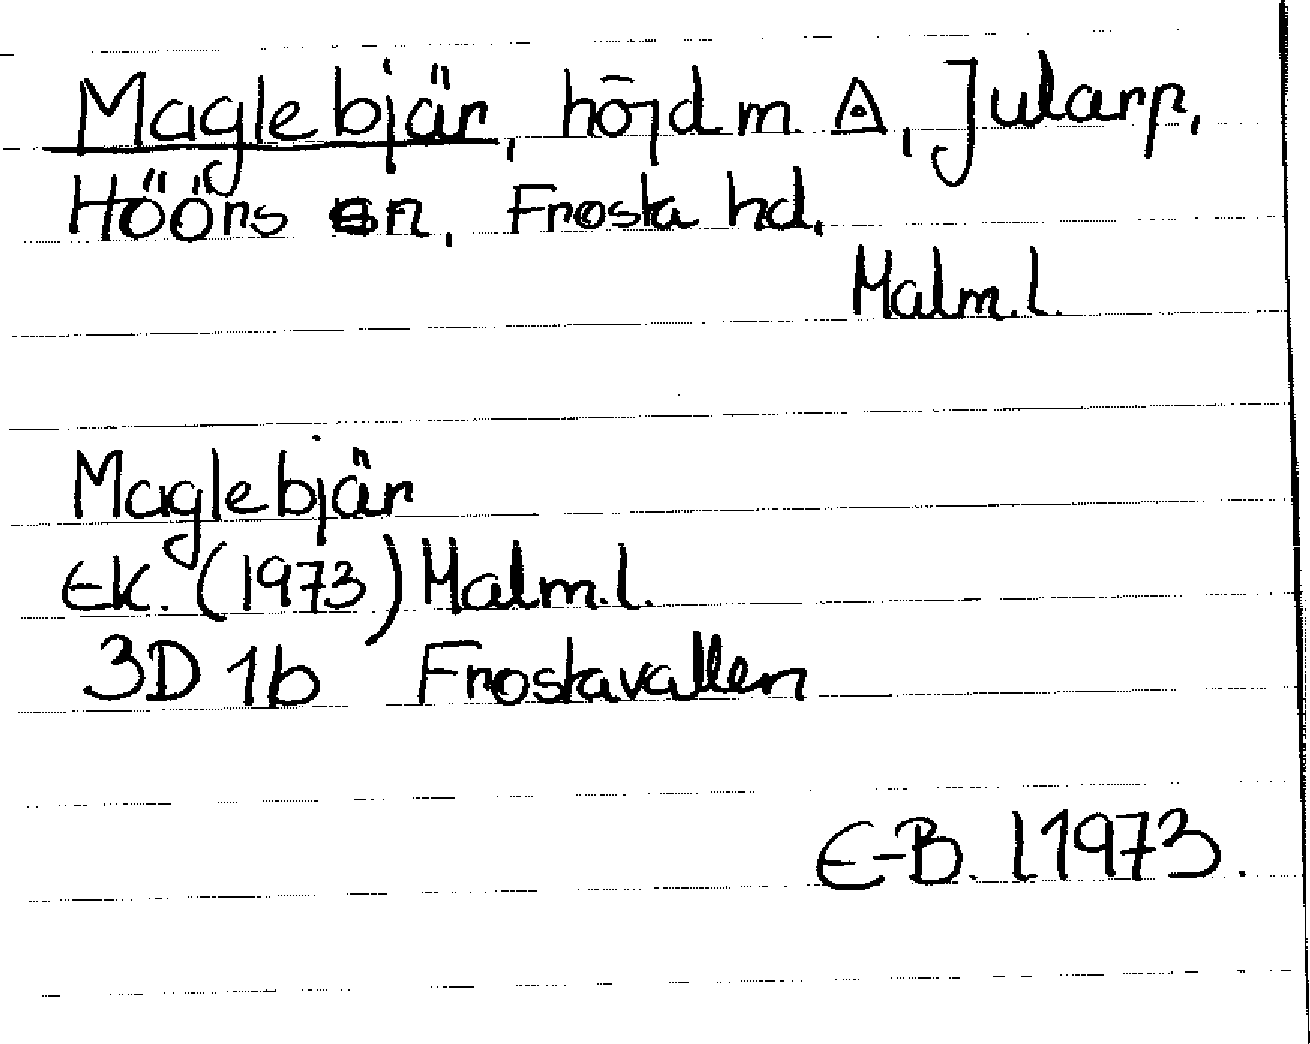 Maglebjär, höjd m. ◬, Jularp,
Hööns sn, Frosta hd.
Malm.l.
Maglebjär
Ek. (1973) Malm.l.
3D 1b Frostavallen
E-B. L 1973.